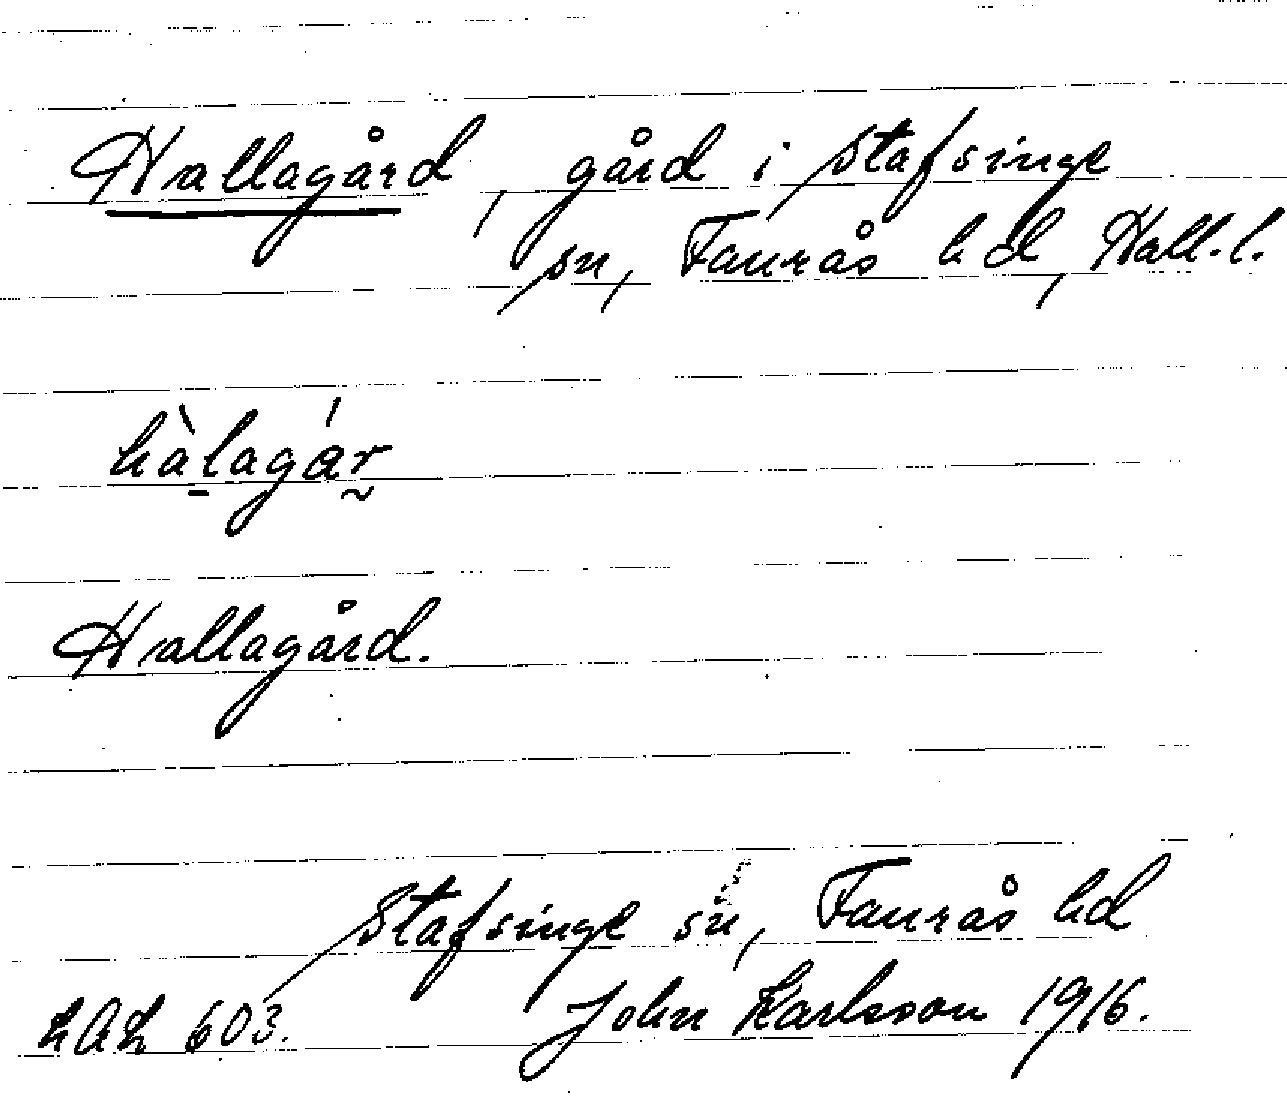 Hallagård, gård i Stafsinge
sn, Faurås hd, Hall.l.
hàlagár
Hallagård.
Stafsinge sn, Faurås hd
LAL 603. John Karlsson 1916.